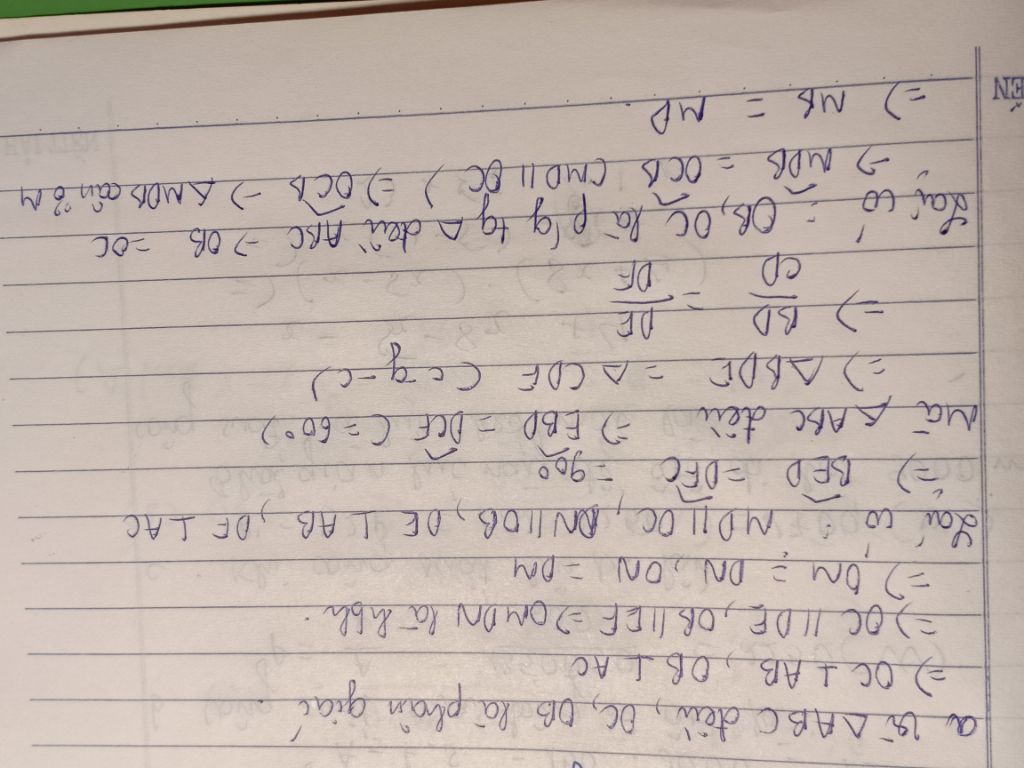 a Vì △ABC đều, OC, OB là phân giác
=> OC ⊥ AB, OB ⊥ AC
=> OC // DE, OB // EF => OMDN là hbh.
=> OM = DN, ON = DM
Lại có: MD // OC, DN // OB, DE ⊥ AB, DF ⊥ AC
=> BED = DFC = 90°
Mà △ABC đều => EBD = DCF (= 60°)
=> △BDE = △CDF (c-g-c)
=> BD/CD = DE/DF
Lại có: OB, OC là p/g tg △ đều ABC -> OB = OC
=> MDB = OCB (MD // OC) => OCB -> △MDB cân ở M
=> MB = MD
ÊN